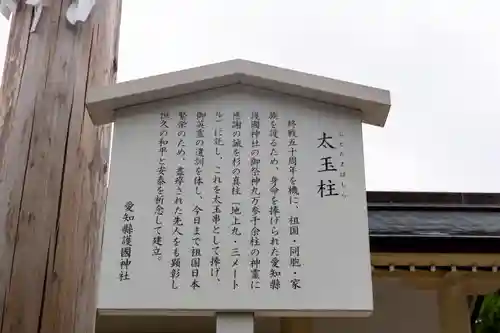 太玉柱
ふとたまばしら
終戦五十周年を機に、祖国・同胞・家
族を護るため、身命を捧げられた愛知縣
護國神社の御祭神九万参千余柱の神霊に
感謝の誠を杉の真柱（地上九・三メート
ル）に託し、これを太玉串として捧げ、
御英霊の遺訓を体し、今日まで祖国日本
繁栄のため、盡瘁された先人をも顕彰し
世久の和平と安泰を祈念して建立。
愛知縣護國神社